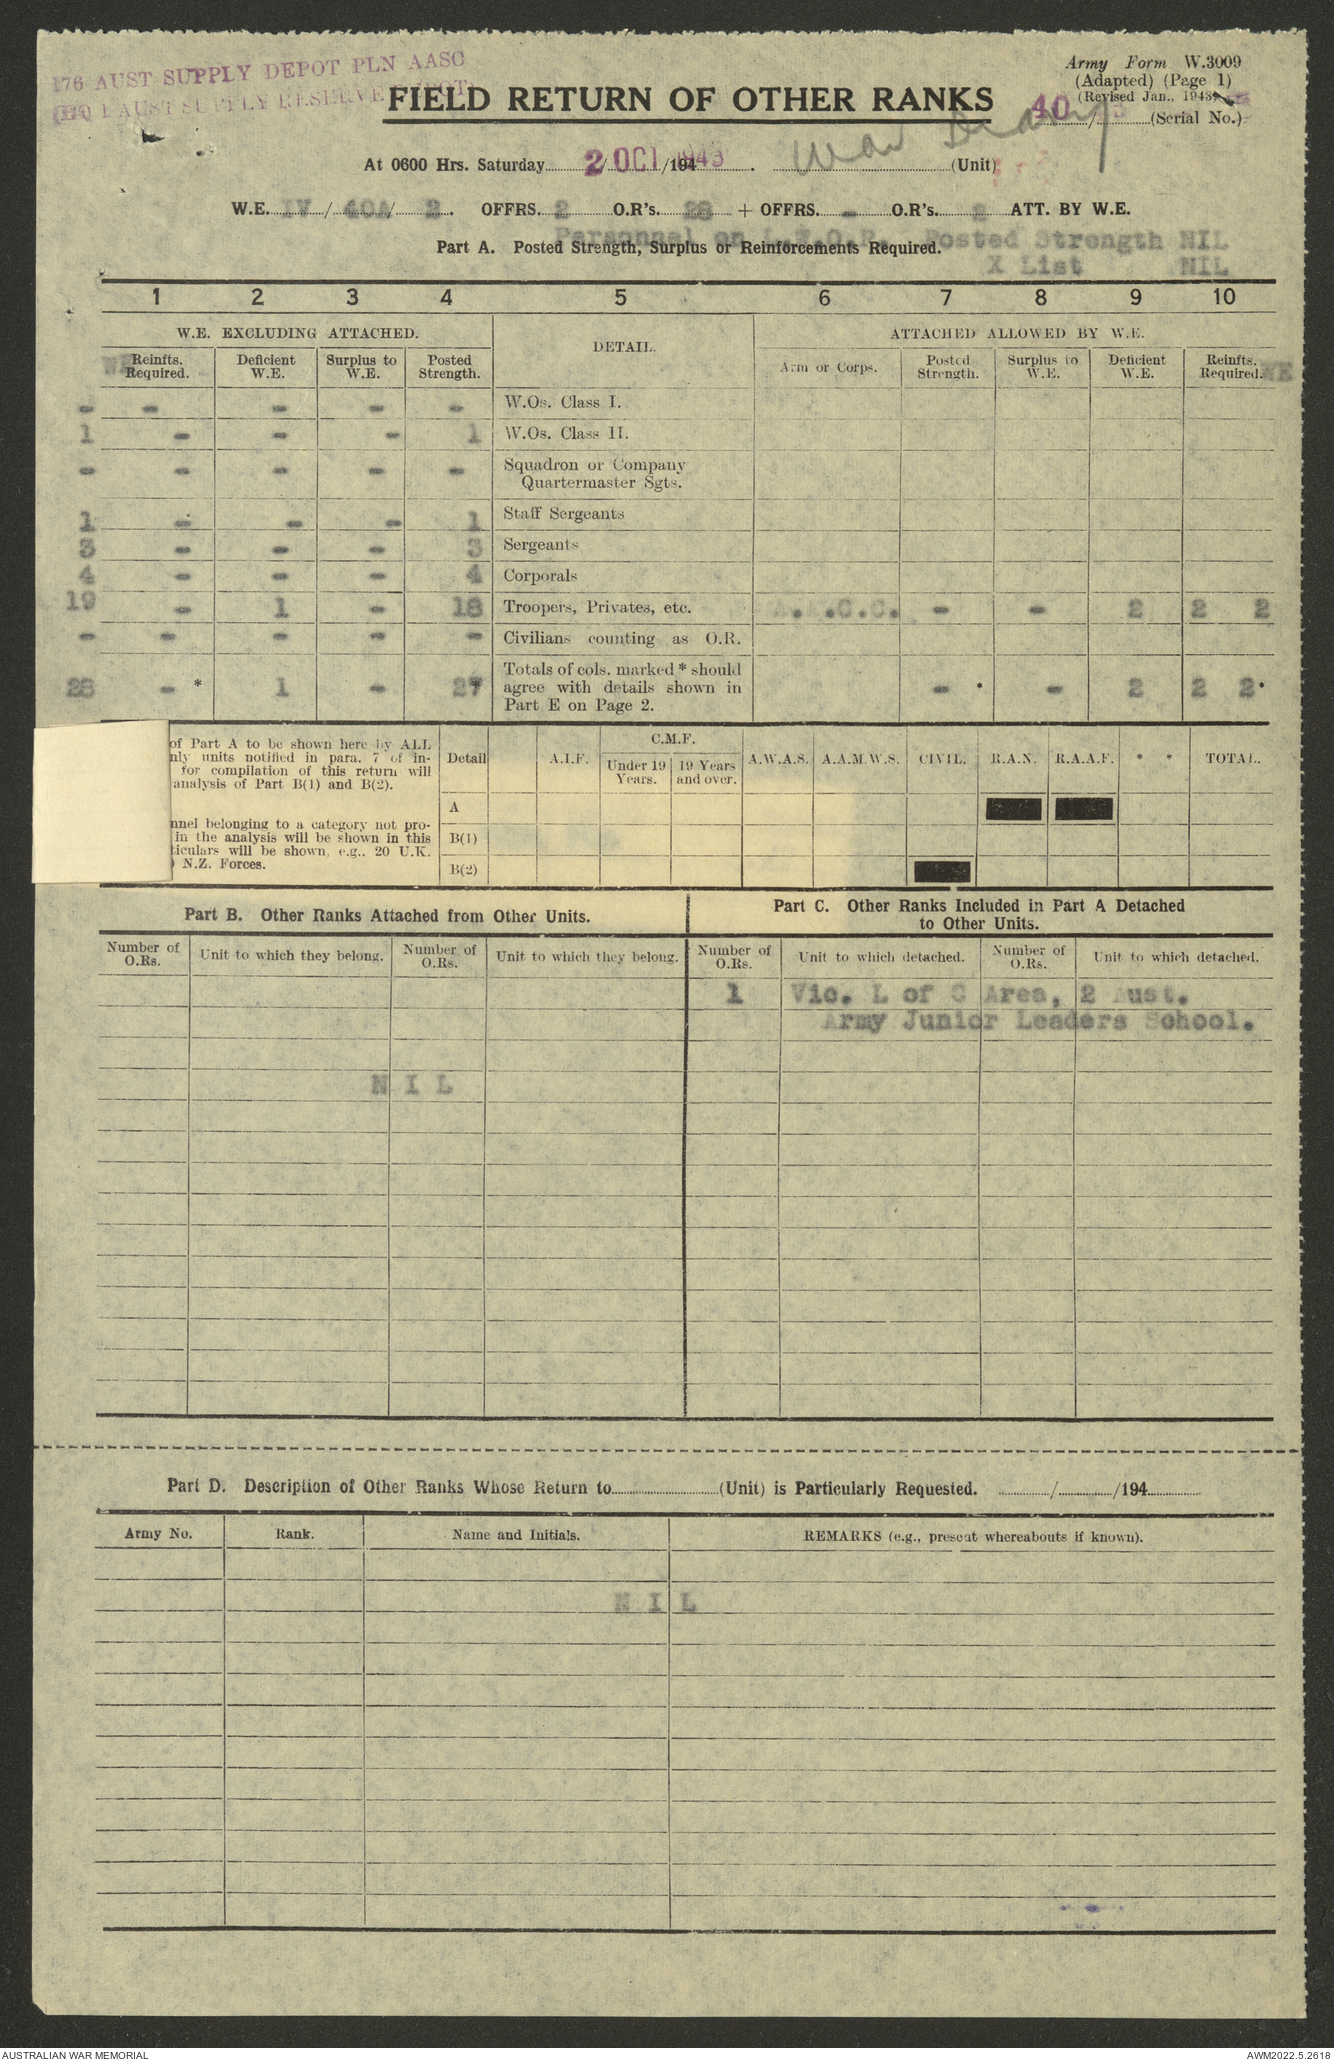 176 AUST SUPPLY DEPOT PLN AASC
(HQ 1 AUST SUPPLY RESERVE DEPOT)
Army Form W.3009
(Adapted) (Page 1)
(Revised Jan., 1943)
FIELD RETURN OF OTHER RANKS
40 / (Serial No.)
At 0600 Hrs. Saturday 2 OCT 1943 /194 . War Diary (Unit)
W.E. IV / 40A / 2 . OFFRS. 2 O.R's. 28 + OFFRS. - O.R's. 2 ATT. BY W.E.
Personnel on L.T.O.P. Posted Strength NIL
Part A. Posted Strength, Surplus or Reinforcements Required.
X List NIL
1 2 3 4 5 6 7 8 9 10
W.E. EXCLUDING ATTACHED. DETAIL. ATTACHED ALLOWED BY W.E.
WE Reinfts. Required. Deficient W.E. Surplus to W.E. Posted Strength. Arm or Corps. Posted Strength. Surplus to W.E. Deficient W.E. Reinfts. Required. WE
- - - - - W.Os. Class I.
1 - - - 1 W.Os. Class II.
- - - - - Squadron or Company
Quartermaster Sgts.
1 - - - 1 Staff Sergeants
3 - - - 3 Sergeants
4 - - - 4 Corporals
19 - 1 - 18 Troopers, Privates, etc. A.A.C.C. - - 2 2 2
- - - - - Civilians counting as O.R.
28 - * 1 - 27* Totals of cols. marked * should
agree with details shown in
Part E on Page 2. - * - 2 2 2*
of Part A to be shown here by ALL
nly units notified in para. 7 of in-
for compilation of this return will
analysis of Part B(1) and B(2).
nnel belonging to a category not pro-
in the analysis will be shown in this
ticulars will be shown, e.g., 20 U.K.
) N.Z. Forces.
Detail A.I.F. C.M.F. A.W.A.S. A.A.M.W.S. CIVIL. R.A.N. R.A.A.F. * * TOTAL.
Under 19 Years. 19 Years and over.
A
B(1)
B(2)
Part B. Other Ranks Attached from Other Units.
Part C. Other Ranks Included in Part A Detached
to Other Units.
Number of O.Rs. Unit to which they belong. Number of O.Rs. Unit to which they belong. Number of O.Rs. Unit to which detached. Number of O.Rs. Unit to which detached.
1 Vic. L of C Area, 2 Aust.
Army Junior Leaders School.
N I L
Part D. Description of Other Ranks Whose Return to (Unit) is Particularly Requested. / /194
Army No. Rank. Name and Initials. REMARKS (e.g., present whereabouts if known).
N I L
AUSTRALIAN WAR MEMORIAL AWM2022.5.2618